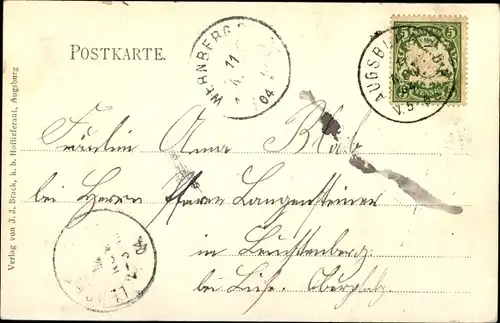 POSTKARTE.
WERNBERG
11
04
AUGSBURG
5
Fräulein Anna Blab
bei Herrn Pfarrer Langensteiner
in Leuchtenberg
bei Oberpfalz.
Verlag von J. J. Brack, k. b. Hoflieferant, Augsburg